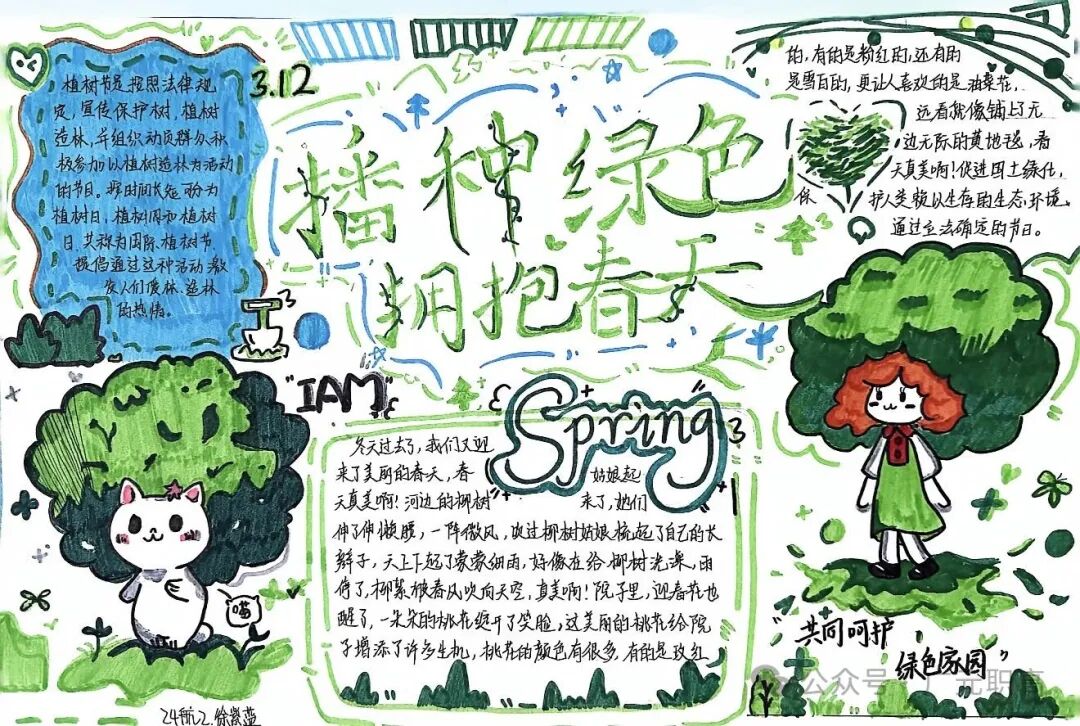 3.12
播种绿色
拥抱春天
植树节是按照法律规
定,宣传保护树,植树
造林,并组织动员群众积
极参加以植树造林为活动
的节日。按时间长短可分为
植树日,植树周和植树
月,共称为国际植树节.
提倡通过这种活动,激
发人们爱林、造林
的热情。
"IAM"
Spring
冬天过去了,我们又迎
来了美丽的春天,春
天真美啊!河边的柳树
姑娘起
来了,她们
伸了伸懒腰,一阵微风,吹过柳树姑娘梳起了自己的长
辫子,天上下起了蒙蒙细雨,好像在给柳树洗澡,雨
停了,柳絮被春风吹向天空,真美啊!院子里,迎春花也
醒了,一朵朵的桃花绽开了笑脸,这美丽的桃花给院
子增添了许多生机,桃花的颜色有很多,有的是玫红
的,有的是粉红的,还有的
是雪白的,更让人喜欢的是油菜花,
远看就像铺上了无
边无际的黄地毯,看
天真美啊!促进国土绿化,
保
护人类赖以生存的生态环境,
通过立法确定的节日。
喵
"共同呵护
绿色家园"
公众号 广元职高